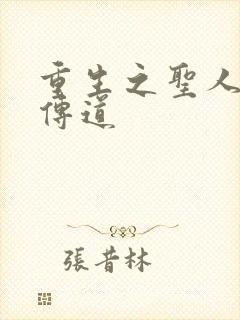 重生之聖人
傳道
張昔林